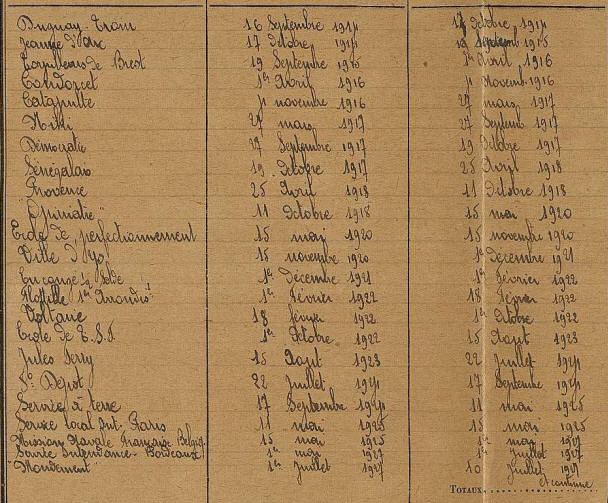 Duguay-Trouin 16 Septembre 1914 17 Octobre 1914
Jeanne d'Arc 17 Octobre 1914 19 Septemb 1915
Torpilleurs de Brest 19 Septembre 1915 1er Avril 1916
Condorcet 1er Avril 1916 11 Novemb. 1916
Catapulte 11 novembre 1916 27 mars 1917
Niki 27 mars 1917 27 Septemb 1917
Démocratie 27 Septembre 1917 19 Octobre 1917
Sénégalais 19 Octobre 1917 25 Avril 1918
Provence 25 Avril 1918 11 Octobre 1918
"Dunoise" 11 Octobre 1918 15 mai 1920
Ecole de perfectionnement 15 mai 1920 15 novembre 1920
Ville d'Ys 15 novembre 1920 1er décembre 1921
En congé ½ Solde 1er Décembre 1921 1er Février 1922
Flottille 1er 1er Février 1922 18 Février 1922
Voltaire 18 février 1922 1er Octobre 1922
Ecole de T.S.F. 1er Octobre 1922 15 Août 1923
Jules Ferry 15 Août 1923 22 Juillet 1924
5e Dépôt 22 Juillet 1924 17 Septembre 1924
Service à terre 17 Septembre 1924 11 mai 1925
Service local Int. Paris 11 mai 1925 15 mai 1925
Mission Navale Française Belgique 15 mai 1925 1er mai 1927
Service Intendance - Bordeaux 1er mai 1927 1er Juillet 1927
"Mondement" 1er Juillet 1927 10 Juillet 1927
et continue
TOTAUX